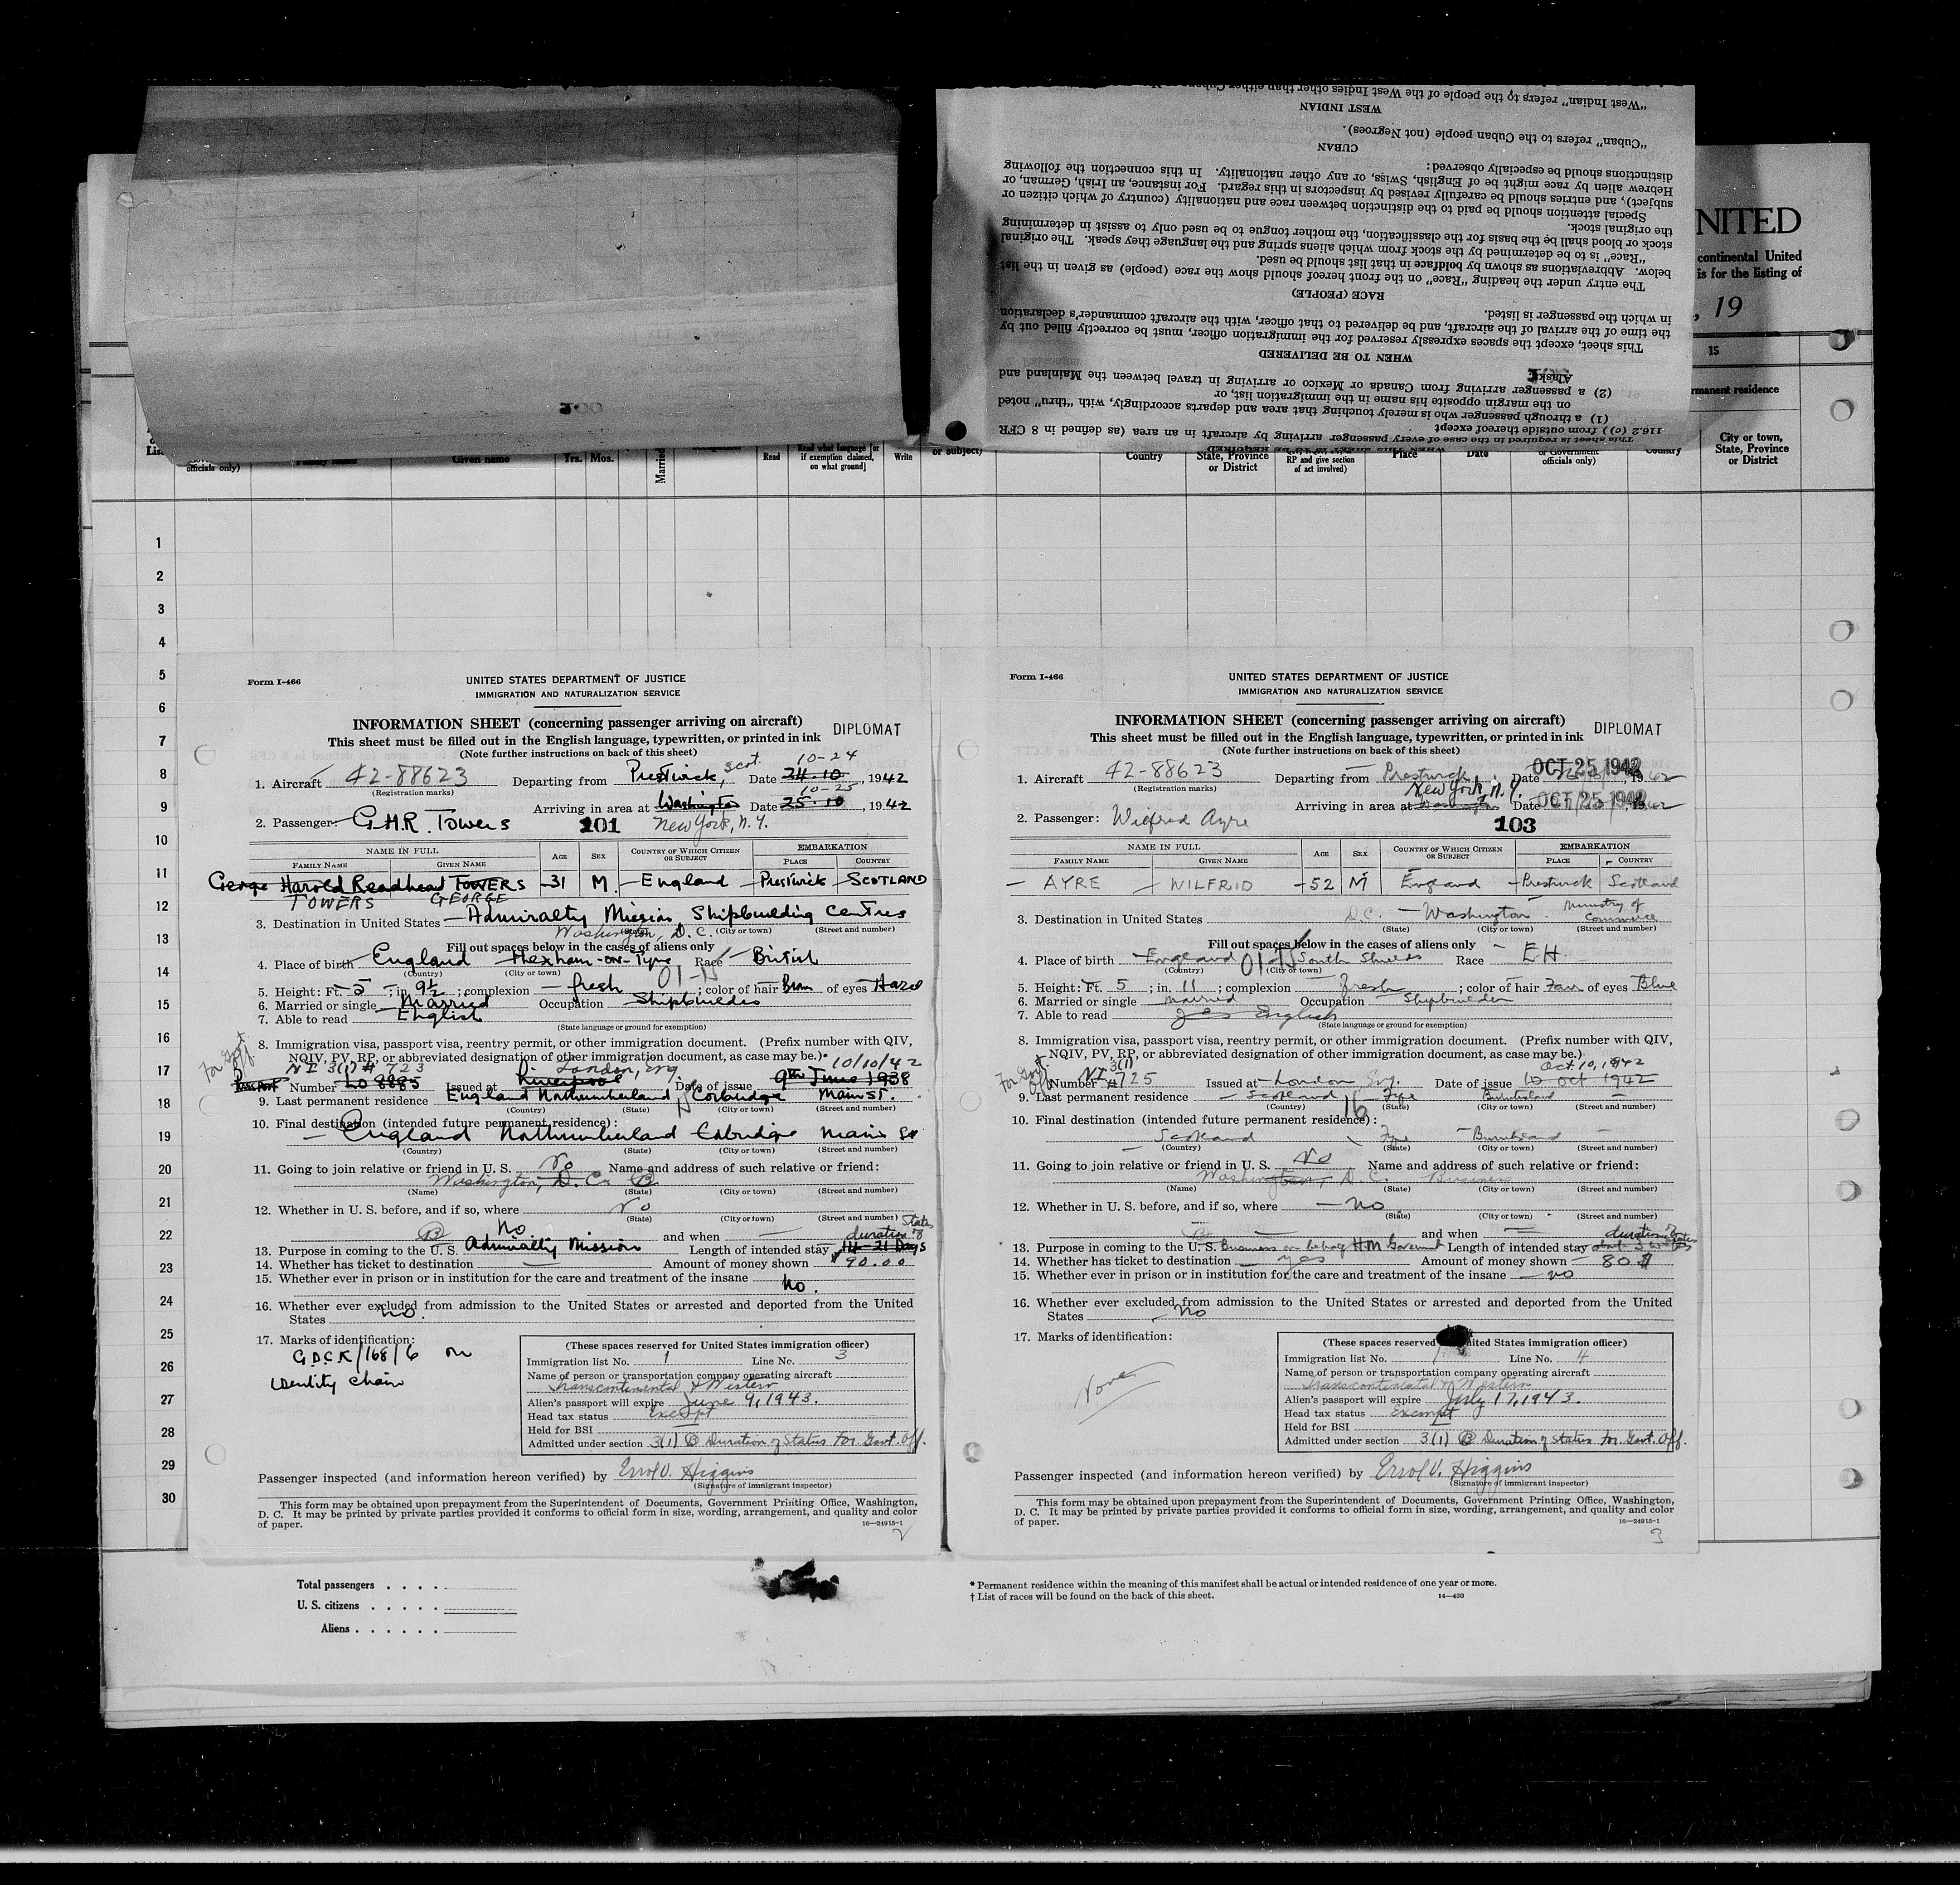 "West Indian" refers to the people of the West Indies other than either Cuban
WEST INDIAN
"Cuban" refers to the Cuban people (not Negroes).
CUBAN
distinctions should be especially observed:
Hebrew alien by race might be of English, Swiss, or any other nationality. In this connection the following
subject), and entries should be carefully revised by inspectors in this regard. For instance, an Irish, German, or
Special attention should be paid to the distinction between race and nationality (country of which citizen or
the original stock.
stock or blood shall be the basis for the classification, the mother tongue to be used only to assist in determining
"Race" is to be determined by the stock from which aliens spring and the language they speak. The original
below. Abbreviations as shown by boldface in that list should be used.
The entry under the heading "Race" on the front hereof should show the race (people) as given in the list
RACE (PEOPLE)
in which the passenger is listed.
the time of the arrival of the aircraft, and be delivered to that officer, with the aircraft commander's declaration
This sheet, except the spaces expressly reserved for the immigration officer, must be correctly filled out by
WHEN TO BE DELIVERED
Alaska
(2) a passenger arriving from Canada or Mexico or arriving in travel between the Mainland and
on the margin opposite his name in the immigration list, or
(1) a through passenger who is merely touching that area and departs accordingly, with "thru" noted
116.2 (c)) from outside thereof except
This sheet is required in the case of every passenger arriving by aircraft in an area (as defined in 8 CFR
NITED
continental United
is for the listing of
, 19
15
rmanent residence
List
officials only)
Family name
Given name
Yrs. Mos.
Married
Read
Read what language [or if exemption claimed, on what ground]
Write
or subject)
Country
State, Province or District
RP and give section of act involved)
Place
Date
or Government officials only)
Country
City or town, State, Province or District
1
2
3
4
5
6
7
8
9
10
11
12
13
14
15
16
17
18
19
20
21
22
23
24
25
26
27
28
29
30
Form I-466
UNITED STATES DEPARTMENT OF JUSTICE
IMMIGRATION AND NATURALIZATION SERVICE
INFORMATION SHEET (concerning passenger arriving on aircraft)
DIPLOMAT
This sheet must be filled out in the English language, typewritten, or printed in ink
(Note further instructions on back of this sheet)
10-24
1. Aircraft 42-88623 Departing from Prestwick, Scot. Date 24.10, 1942
(Registration marks)
10-25
Arriving in area at Washington Date 25.10, 1942
2. Passenger: G.H.R. Towers 101 New York, N.Y.
NAME IN FULL
FAMILY NAME GIVEN NAME AGE SEX COUNTRY OF WHICH CITIZEN OR SUBJECT EMBARKATION PLACE COUNTRY
George Harold Readhead TOWERS 31 M. England Prestwick SCOTLAND
TOWERS GEORGE
3. Destination in United States Admiralty Mission, Shipbuilding Centres
Washington, D.C. (State) (City or town) (Street and number)
Fill out spaces below in the cases of aliens only
4. Place of birth England Hexham-on-Tyne Race British
(Country) (City or town)
5. Height: Ft. 5; in. 9½; complexion fresh; color of hair Brown of eyes Hazel
6. Married or single Married Occupation Shipbuilder
7. Able to read English
(State language or ground for exemption)
8. Immigration visa, passport visa, reentry permit, or other immigration document. (Prefix number with QIV,
NQIV, PV, RP, or abbreviated designation of other immigration document, as case may be.)
For Govt Off. NI 3(1) # 723 London, Eng. 10/10/42
Passport Number LO 8885 Issued at Liverpool Date of issue 9th June 1938
9. Last permanent residence England Northumberland Corbridge Main St.
(Country) (State) (City or town) (Street and number)
10. Final destination (intended future permanent residence):
England Northumberland Corbridge Main St
(Country) (State) (City or town) (Street and number)
11. Going to join relative or friend in U. S. No Name and address of such relative or friend:
Washington, D.C. B
(Name) (State) (City or town) (Street and number)
12. Whether in U. S. before, and if so, where No
(State) (City or town) (Street and number)
B No and when — duration of status
13. Purpose in coming to the U. S. Admiralty Mission Length of intended stay 14-21 Days
14. Whether has ticket to destination — Amount of money shown 90.00
15. Whether ever in prison or in institution for the care and treatment of the insane
No.
16. Whether ever excluded from admission to the United States or arrested and deported from the United
States No.
17. Marks of identification:
GDCK/168/6 on
identity chain
(These spaces reserved for United States immigration officer)
Immigration list No. 1 Line No. 3
Name of person or transportation company operating aircraft
Transcontinental & Western
Alien's passport will expire June 9, 1943.
Head tax status Exempt
Held for BSI —
Admitted under section 3(1) B Duration of Status For. Govt. Off.
Passenger inspected (and information hereon verified) by Errol V. Higgins
(Signature of immigrant inspector)
This form may be obtained upon prepayment from the Superintendent of Documents, Government Printing Office, Washington,
D. C. It may be printed by private parties provided it conforms to official form in size, wording, arrangement, and quality and color
of paper. 16—24915-1
2
Form I-466
UNITED STATES DEPARTMENT OF JUSTICE
IMMIGRATION AND NATURALIZATION SERVICE
INFORMATION SHEET (concerning passenger arriving on aircraft)
DIPLOMAT
This sheet must be filled out in the English language, typewritten, or printed in ink
(Note further instructions on back of this sheet)
1. Aircraft 42-88623 Departing from Prestwick Date OCT 25 1942, 1942
(Registration marks) New York, N.Y.
Arriving in area at Washington Date OCT 25 1942, 1942
2. Passenger: Wilfred Ayre 103
NAME IN FULL
FAMILY NAME GIVEN NAME AGE SEX COUNTRY OF WHICH CITIZEN OR SUBJECT EMBARKATION PLACE COUNTRY
AYRE WILFRID 52 M England Prestwick Scotland
3. Destination in United States D.C. Washington Ministry of Commerce
(State) (City or town) (Street and number)
Fill out spaces below in the cases of aliens only
4. Place of birth England South Shields Race EH.
(Country) (City or town)
5. Height: Ft. 5; in. 11; complexion fresh; color of hair Fair of eyes Blue
6. Married or single Married Occupation Shipbuilder
7. Able to read yes English
(State language or ground for exemption)
8. Immigration visa, passport visa, reentry permit, or other immigration document. (Prefix number with QIV,
NQIV, PV, RP, or abbreviated designation of other immigration document, as case may be.)
For Govt. Off. NI 3(1) Oct. 10, 1942
Number #725 Issued at London Eng. Date of issue 10 Oct 1942
9. Last permanent residence Scotland Fife Burntisland —
(Country) (State) (City or town) (Street and number)
10. Final destination (intended future permanent residence):
Scotland Fife Burntisland —
(Country) (State) (City or town) (Street and number)
11. Going to join relative or friend in U. S. No Name and address of such relative or friend:
Washington, D.C. Business
(Name) (State) (City or town) (Street and number)
12. Whether in U. S. before, and if so, where No
(State) (City or town) (Street and number)
and when — duration of status
13. Purpose in coming to the U. S. Business on behalf H.M. Government Length of intended stay about 3 weeks
14. Whether has ticket to destination yes Amount of money shown 80 $
15. Whether ever in prison or in institution for the care and treatment of the insane no
16. Whether ever excluded from admission to the United States or arrested and deported from the United
States No
17. Marks of identification:
None
(These spaces reserved United States immigration officer)
Immigration list No. 1 Line No. 4
Name of person or transportation company operating aircraft
Transcontinental & Western
Alien's passport will expire July 17, 1943.
Head tax status Exempt
Held for BSI —
Admitted under section 3(1) B Duration of Status For. Govt. Off.
Passenger inspected (and information hereon verified) by Errol V. Higgins
(Signature of immigrant inspector)
This form may be obtained upon prepayment from the Superintendent of Documents, Government Printing Office, Washington,
D. C. It may be printed by private parties provided it conforms to official form in size, wording, arrangement, and quality and color
of paper. 16—24915-1
3
Total passengers . . . .
U. S. citizens . . . . .
Aliens . . . . . .
* Permanent residence within the meaning of this manifest shall be actual or intended residence of one year or more.
† List of races will be found on the back of this sheet. 14—430